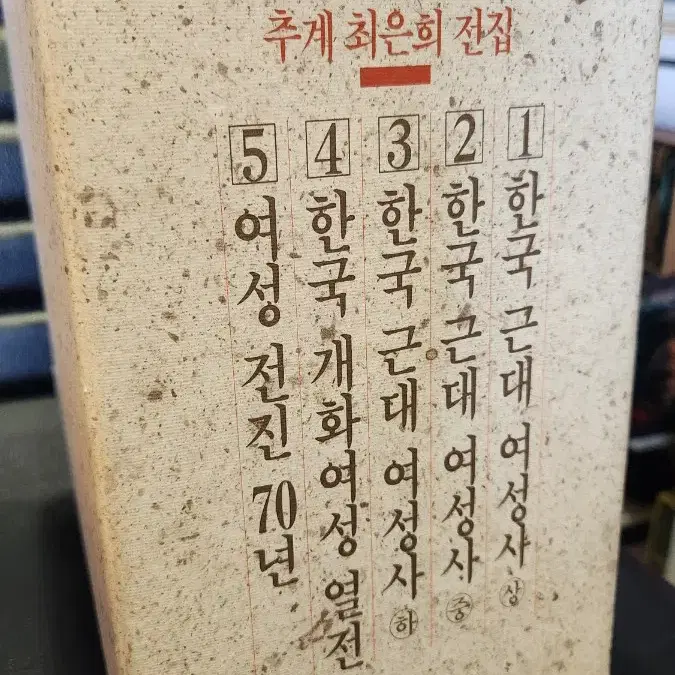 추계 최은희 전집
1 한국 근대 여성사 상
2 한국 근대 여성사 중
3 한국 근대 여성사 하
4 한국 개화여성 열전
5 여성 전진 70년